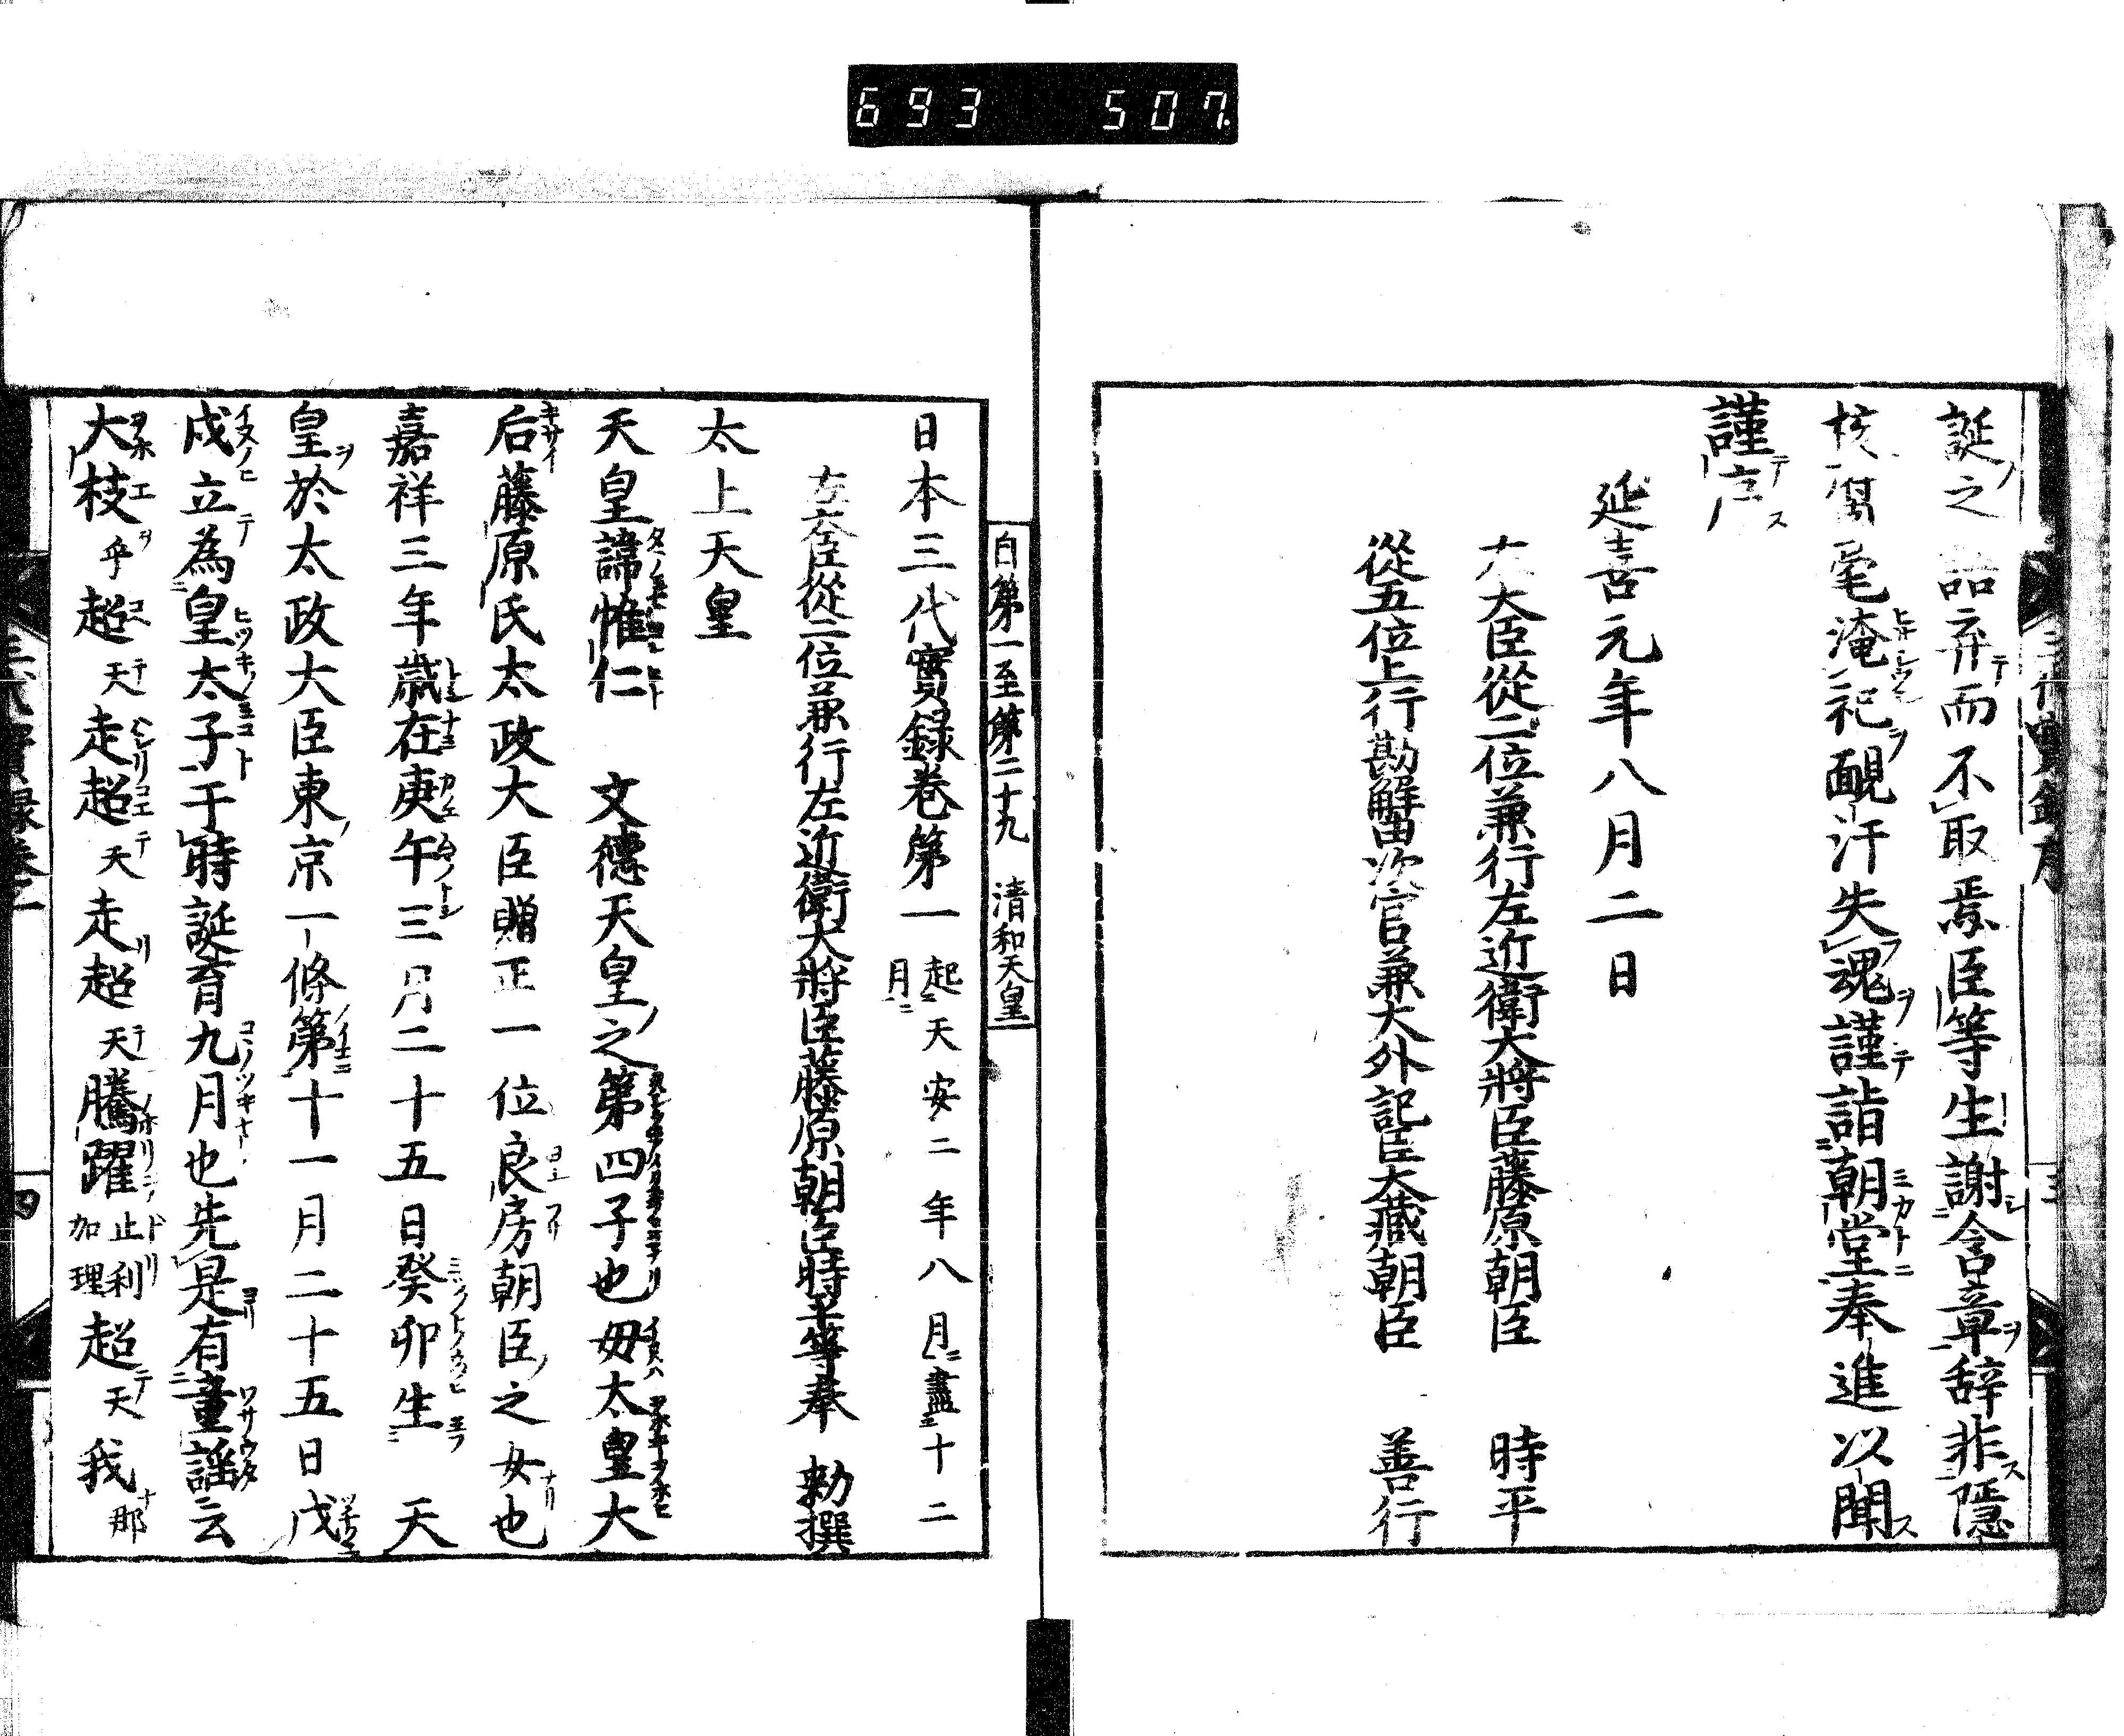 693 507
誕之語弃而不取焉臣等生謝含章辞非隱
核腐毫淹祀靦汗失魂謹詣朝堂奉進以聞
謹序
延喜元年八月二日
大臣從二位兼行左近衛大將臣藤原朝臣 時平
從五位上行勘解由次官兼大外記臣大藏朝臣 善行
自第一至第二十九 清和天皇
日本三代實録巻第一 起天安二年八月盡十二月
左大臣從二位兼行左近衛大將臣藤原朝臣時平等奉 勅撰
太上天皇
天皇諱惟仁 文德天皇之第四子也母太皇大
后藤原氏太政大臣贈正一位良房朝臣之女也
嘉祥三年歳在庚午三月二十五日癸卯生 天
皇於太政大臣東京一條第十一月二十五日戊
戌立為皇太子于時誕育九月也先是有童謡云
大枝乎超天走超天走超天騰躍止利加理超天我那
四